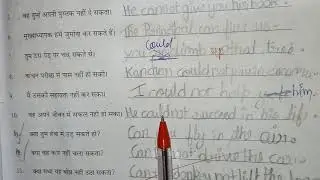 वह तुम्हें अपनी पुस्तक नहीं दे सकता। He cannot give you his book.
मुख्याध्यापक हमें जुर्माना कर सकते हैं। The Principal can fine us
could
तुम उस पेड़ पर चढ़ सकते थे। you climb up that tree
कंचन परीक्षा में पास नहीं कर सकी। Kanchan could not pass in
मैं उसकी सहायता नहीं कर सका। I could not help him.
वह अपने जीवन में सफल नहीं हो सका। He could not succeed in his life.
क्या तुम हवा में उड़ सकते हो? Can you fly in the air.
क्या वह कार नहीं चला सकता? Can he not drive the car.
क्या गधा यह बोझ नहीं उठा सकता? Can donkey not lift the load